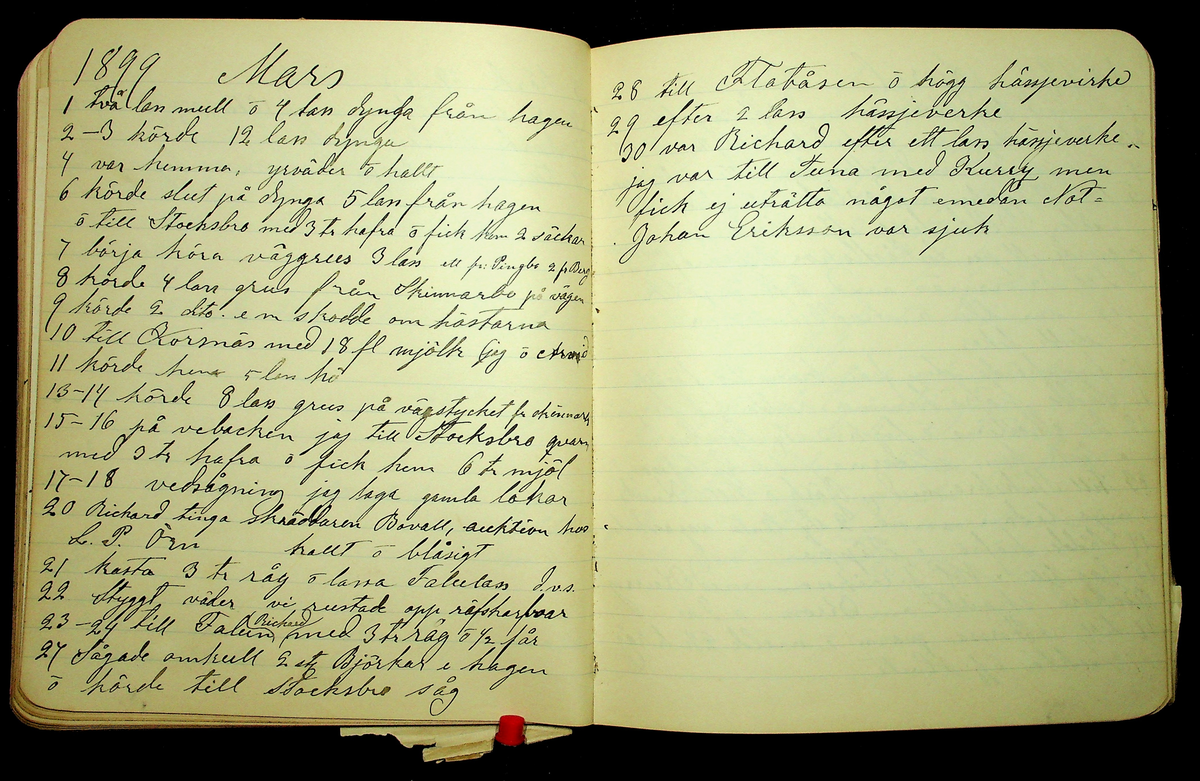 1899 Mars
1 två lass mull ö 4 lass dynga från hagen
2-3 körde 12 lass dynga
4 var hemma, yrväder ö kallt
6 körde slut på dynga 5 lass från hagen
ö till Stocksbro med 3 tr hafra ö fick hem 2 säckar
7 börja köra väggrus 3 lass ett fr: Pingbo 2 fr Berg
8 körde 4 lass grus från Skinnarbo på vägen
9 körde 2 dto. e m skodde om hästarna
10 till Korsnäs med 18 fl mjölk jag ö Arvid
11 körde hem 5 lass hö
13-14 körde 8 lass grus på vägstycket fr Skinnarb
15-16 på vebacken jag till Stocksbro qvarn
med 3 tr hafra ö fick hem 6 tr mjöl
17-18 vedsågning jag laga gamla lokar
20 Richard tinga skräddaren Bovall, auktion hos
L. P. Örn kallt ö blåsigt
21 kasta 3 tr råg ö lassa Falulass
22 Styggt väder vi rustade opp räfsharvar
23-24 till Falun Richard med 3 tr råg ö 1/2 får
27 Sågade omkull 2 st Björkar i hagen
ö körde till Stocksbro såg
28 till Flatåsen ö högg hässjevirke
29 efter 2 lass hässjeverke
30 var Richard efter ett lass hässjeverke
jag var till Tuna med Kurry men
fick ej uträtta något emedan Not=
Johan Eriksson var sjuk